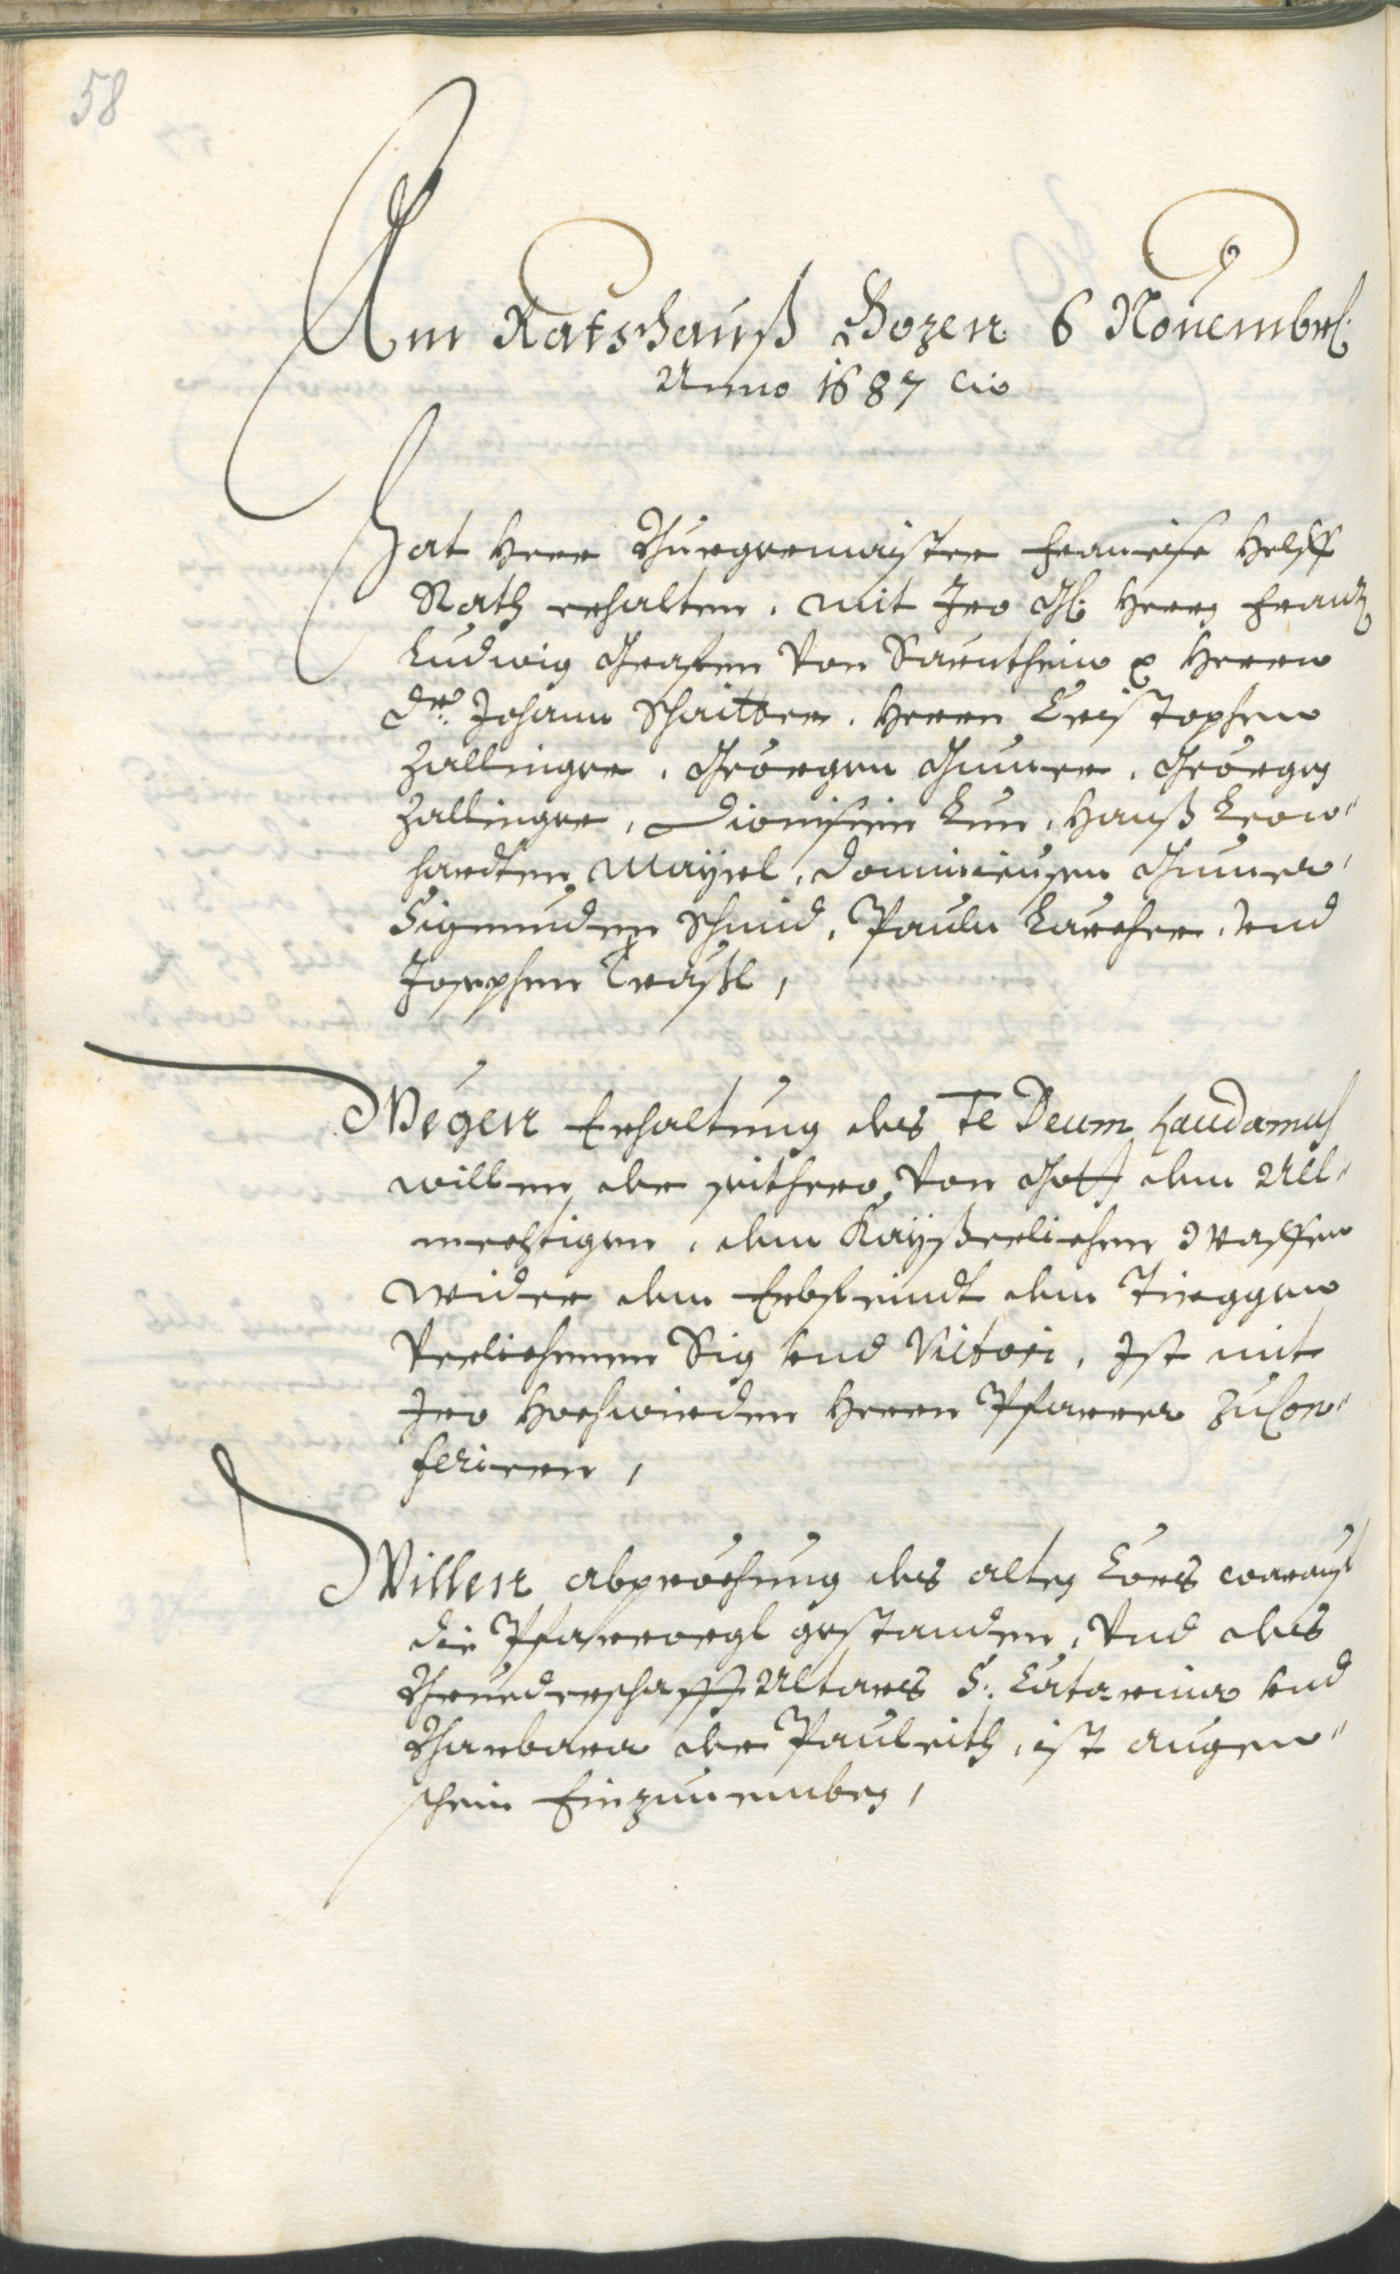 58
Am Ratshauß Bozen 6 Nouembr.
Anno 1687 etc
Hat Herr Burgermaister Francisc Helff
Rath erhalten, mit Iro Gl: Herrn Frantz
Ludwig Grafen Von Sarnthein p Herrn
Dr: Johann Schaitter, Herrn Cristophen
Zallinger, Georgen Gumer, Georgen
Zallinger, Dionisien Lun, Hanß Leon"
hardten Mayrl, Dominicusen Gumer,
Sigmunden Schmid, Pauln Larcher, Vnd
Josephen Trastl,
Wegen Erhaltung des Te Deum Laudamus
willen der seithero Von Gott dem All"
mechtigen, dem Kayßerlichen Waffen
wider den Erbfeindt dem Tirggen
Verlichenen Sig und Victori, Ist mit
Iro Hochwirden Herrn Pfarrer zu Con"
feriern,
Willen abprechung des alten Cors warauf
die Pfarrorgl gestanden, Vnd des
Bruederschafft Altars S: Catarina und
Barbara der Pauleith, ist augen"
schein Einzunemben,